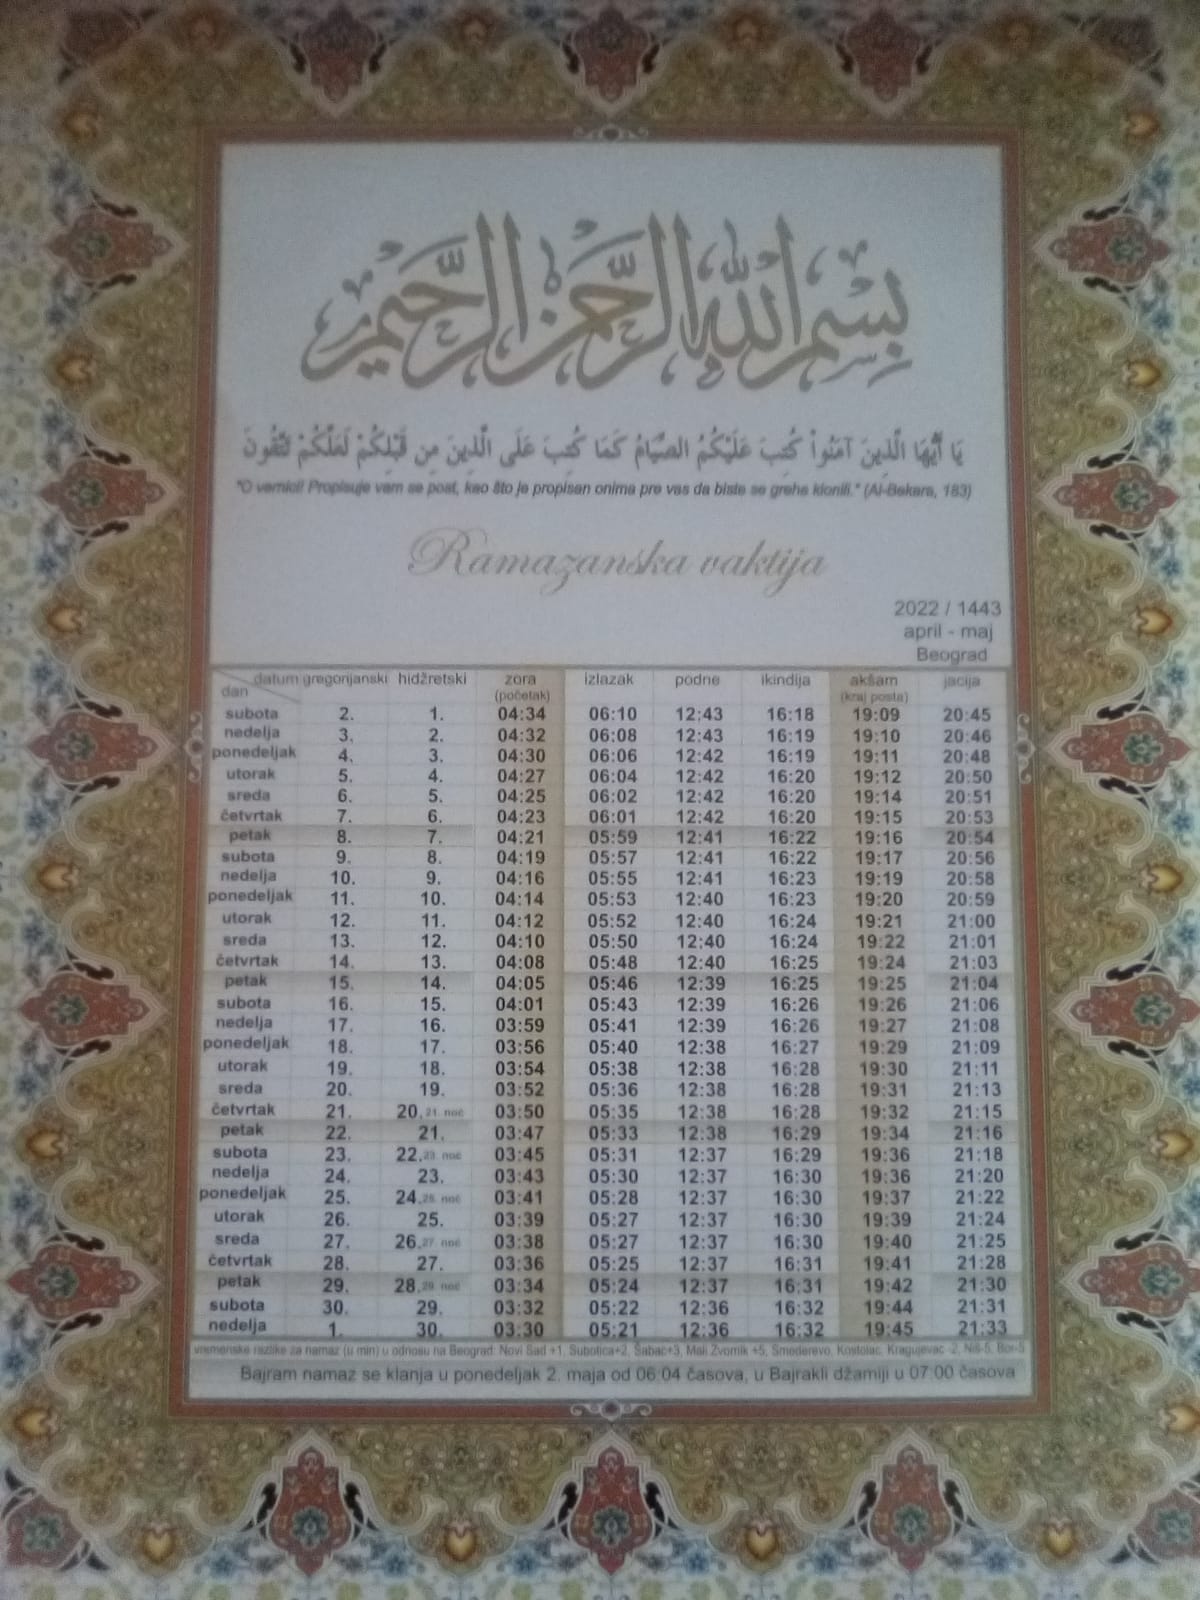 بسم الله الرحمن الرحيم
يَا أَيُّهَا الَّذِينَ آمَنُواْ كُتِبَ عَلَيْكُمُ الصِّيَامُ كَمَا كُتِبَ عَلَى الَّذِينَ مِن قَبْلِكُمْ لَعَلَّكُمْ تَتَّقُونَ
"O vernici! Propisuje vam se post, kao što je propisan onima pre vas da biste se greha klonili." (Al-Bekara, 183)
Ramazanska vaktija
2022 / 1443
april - maj
Beograd
dan datum gregorijanski hidžretski zora (početak) izlazak podne ikindija akšam (kraj posta) jacija
subota 2. 1. 04:34 06:10 12:43 16:18 19:09 20:45
nedelja 3. 2. 04:32 06:08 12:43 16:19 19:10 20:46
ponedeljak 4. 3. 04:30 06:06 12:42 16:19 19:11 20:48
utorak 5. 4. 04:27 06:04 12:42 16:20 19:12 20:50
sreda 6. 5. 04:25 06:02 12:42 16:20 19:14 20:51
četvrtak 7. 6. 04:23 06:01 12:42 16:20 19:15 20:53
petak 8. 7. 04:21 05:59 12:41 16:22 19:16 20:54
subota 9. 8. 04:19 05:57 12:41 16:22 19:17 20:56
nedelja 10. 9. 04:16 05:55 12:41 16:23 19:19 20:58
ponedeljak 11. 10. 04:14 05:53 12:40 16:23 19:20 20:59
utorak 12. 11. 04:12 05:52 12:40 16:24 19:21 21:00
sreda 13. 12. 04:10 05:50 12:40 16:24 19:22 21:01
četvrtak 14. 13. 04:08 05:48 12:40 16:25 19:24 21:03
petak 15. 14. 04:05 05:46 12:39 16:25 19:25 21:04
subota 16. 15. 04:01 05:43 12:39 16:26 19:26 21:06
nedelja 17. 16. 03:59 05:41 12:39 16:26 19:27 21:08
ponedeljak 18. 17. 03:56 05:40 12:38 16:27 19:29 21:09
utorak 19. 18. 03:54 05:38 12:38 16:28 19:30 21:11
sreda 20. 19. 03:52 05:36 12:38 16:28 19:31 21:13
četvrtak 21. 20. 21. noć 03:50 05:35 12:38 16:28 19:32 21:15
petak 22. 21. 03:47 05:33 12:38 16:29 19:34 21:16
subota 23. 22. 23. noć 03:45 05:31 12:37 16:29 19:36 21:18
nedelja 24. 23. 03:43 05:30 12:37 16:30 19:36 21:20
ponedeljak 25. 24. 25. noć 03:41 05:28 12:37 16:30 19:37 21:22
utorak 26. 25. 03:39 05:27 12:37 16:30 19:39 21:24
sreda 27. 26. 27. noć 03:38 05:27 12:37 16:30 19:40 21:25
četvrtak 28. 27. 03:36 05:25 12:37 16:31 19:41 21:28
petak 29. 28. 29. noć 03:34 05:24 12:37 16:31 19:42 21:30
subota 30. 29. 03:32 05:22 12:36 16:32 19:44 21:31
nedelja 1. 30. 03:30 05:21 12:36 16:32 19:45 21:33
vremenske razlike za namaz (u min) u odnosu na Beograd: Novi Sad +1, Subotica+2, Šabac+3, Mali Zvornik +5, Smederevo, Kostolac, Kragujevac -2, Niš-5, Bor-5
Bajram namaz se klanja u ponedeljak 2. maja od 06:04 časova, u Bajrakli džamiji u 07:00 časova